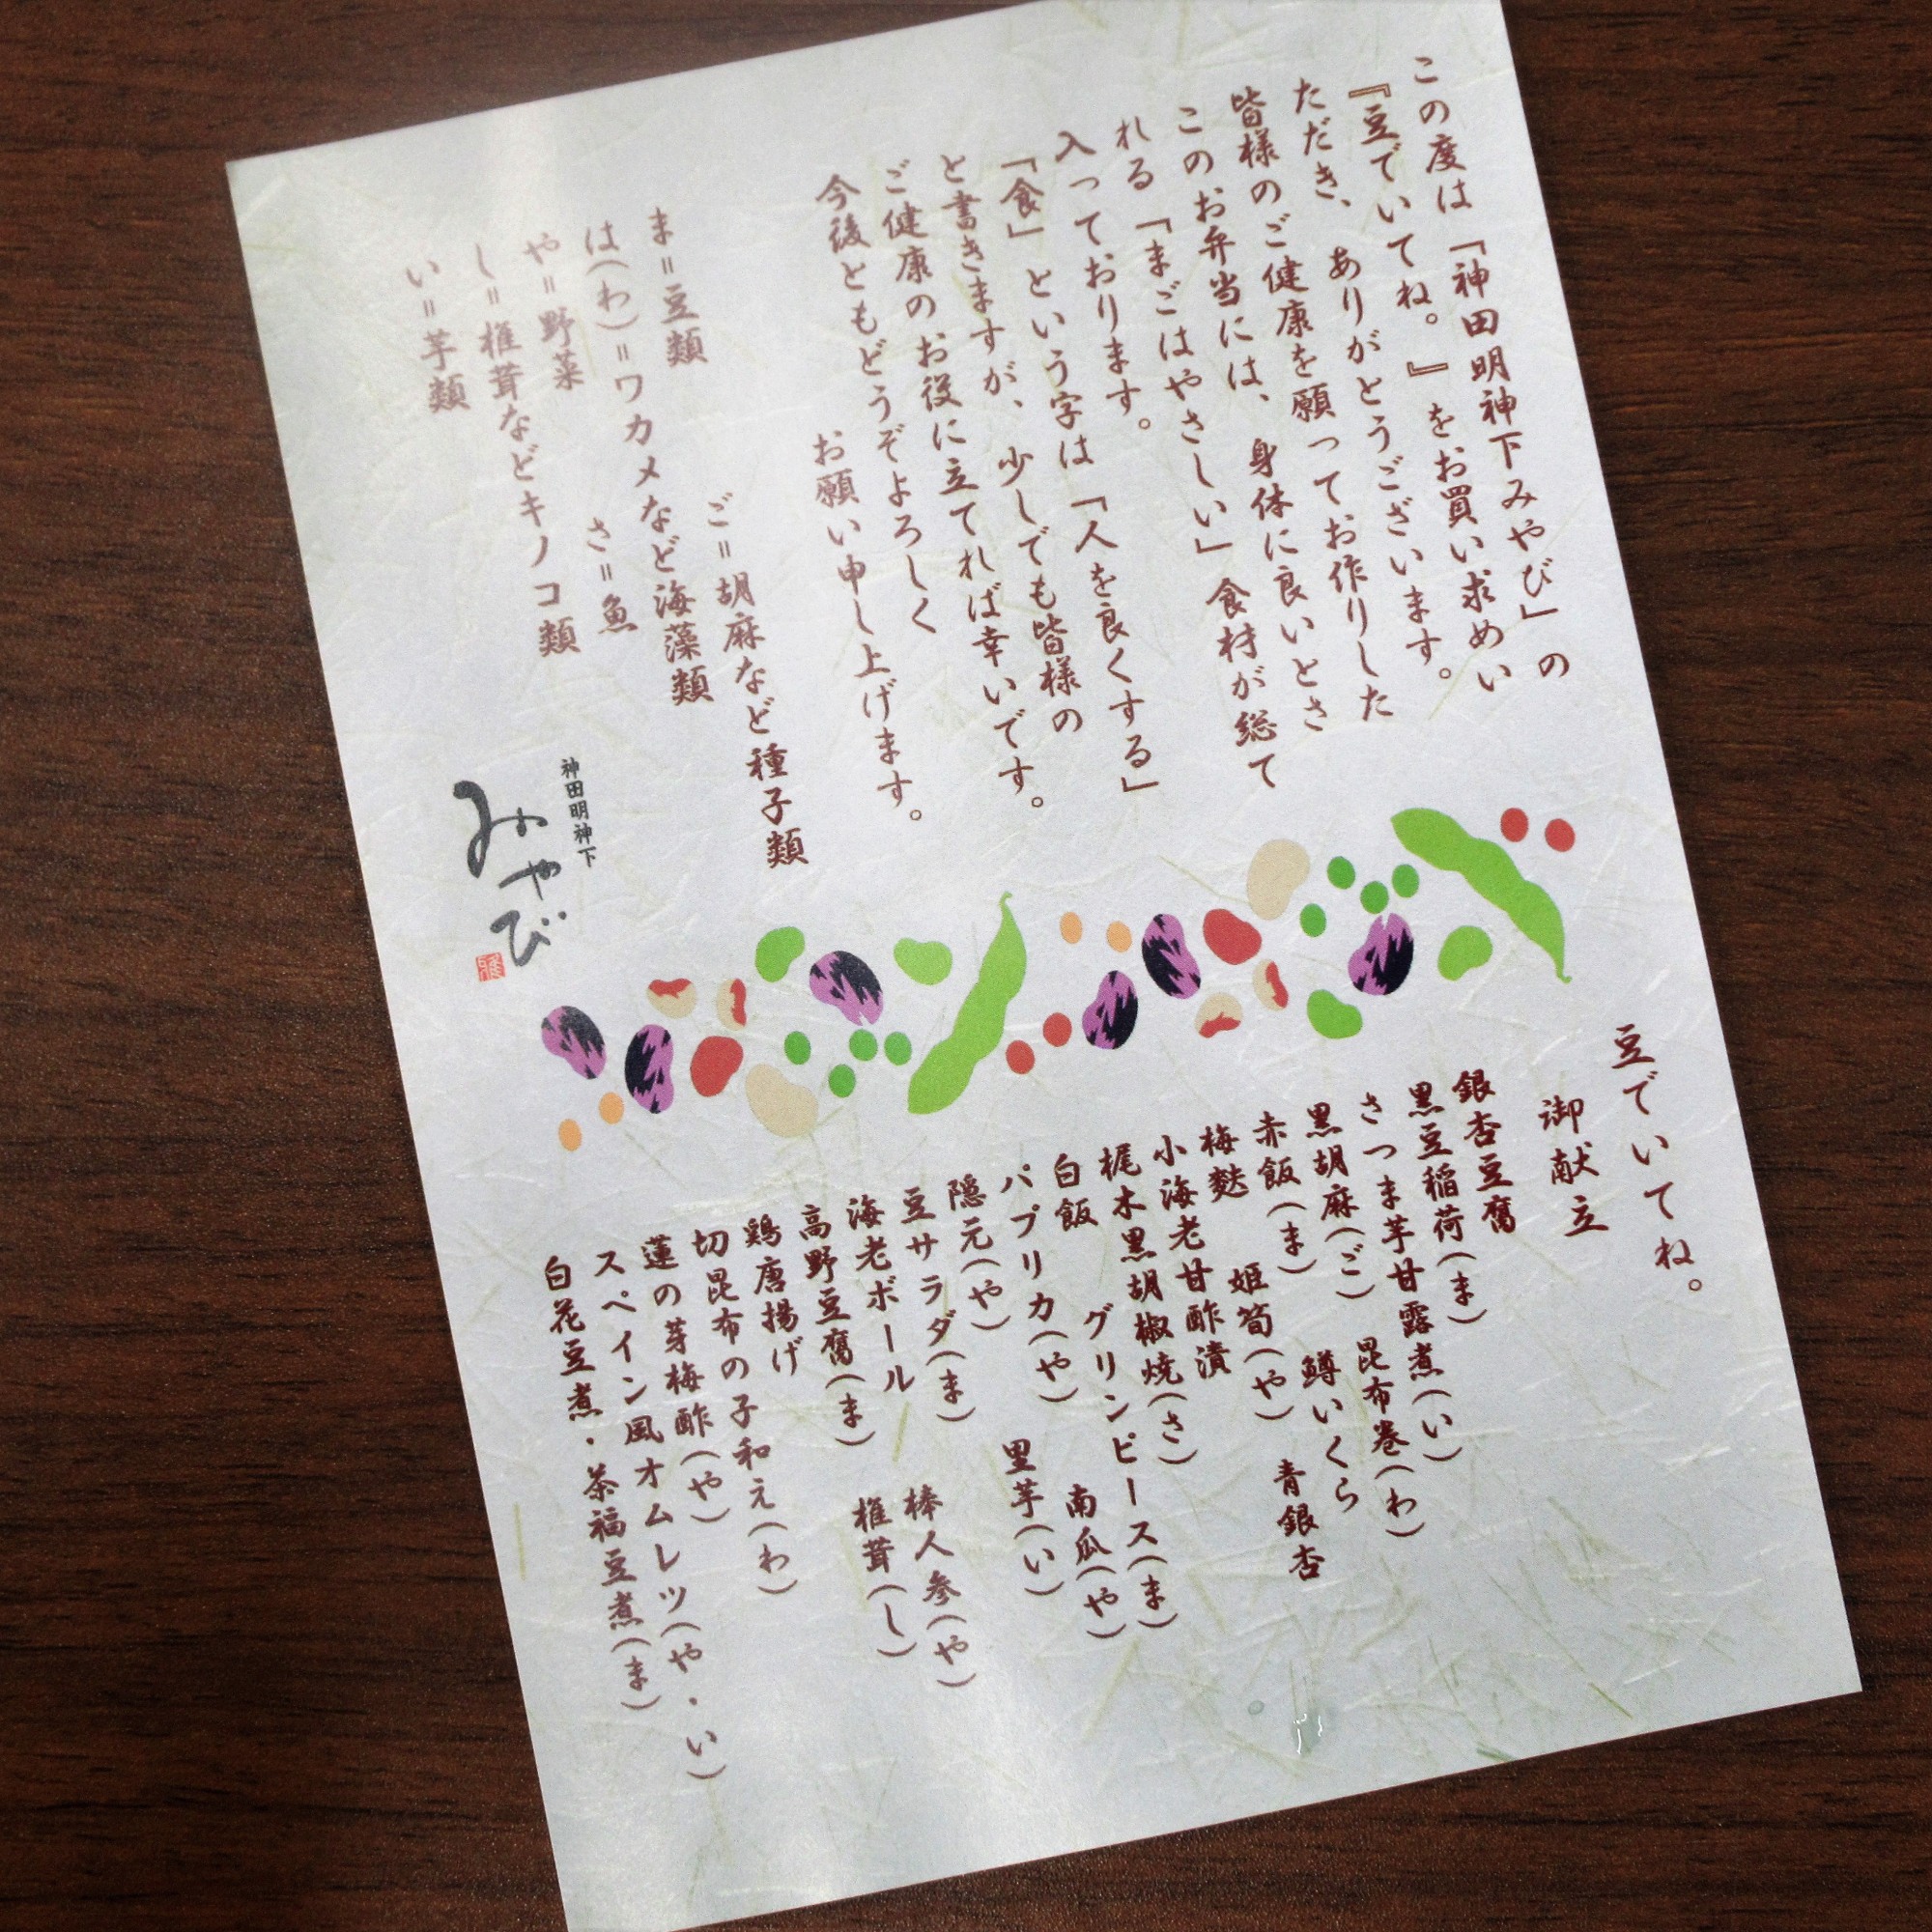 この度は「神田明神下みやび」の
『豆でいてね。』をお買い求めい
ただき、ありがとうございます。
皆様のご健康を願ってお作りした
このお弁当には、身体に良いとさ
れる「まごはやさしい」食材が総て
入っております。
「食」という字は「人を良くする」
と書きますが、少しでも皆様の
ご健康のお役に立てれば幸いです。
今後ともどうぞよろしく
お願い申し上げます。
ま=豆類 ご=胡麻など種子類
は(わ)=ワカメなど海藻類
や=野菜 さ=魚
し=椎茸などキノコ類
い=芋類
神田明神下
みやび
雅
豆でいてね。
御献立
銀杏豆腐
黒豆稲荷(ま)
さつま芋甘露煮(い)
黒胡麻(ご) 昆布巻(わ)
赤飯(ま) 鱒いくら
梅麩 姫筍(や) 青銀杏
小海老甘酢漬
梶木黒胡椒焼(さ)
白飯 グリンピース(ま)
パプリカ(や) 南瓜(や)
隠元(や) 里芋(い)
豆サラダ(ま)
海老ボール 棒人参(や)
高野豆腐(ま) 椎茸(し)
鶏唐揚げ
切昆布の子和え(わ)
蓮の芽梅酢(や)
スペイン風オムレツ(や・い)
白花豆煮・茶福豆煮(ま)